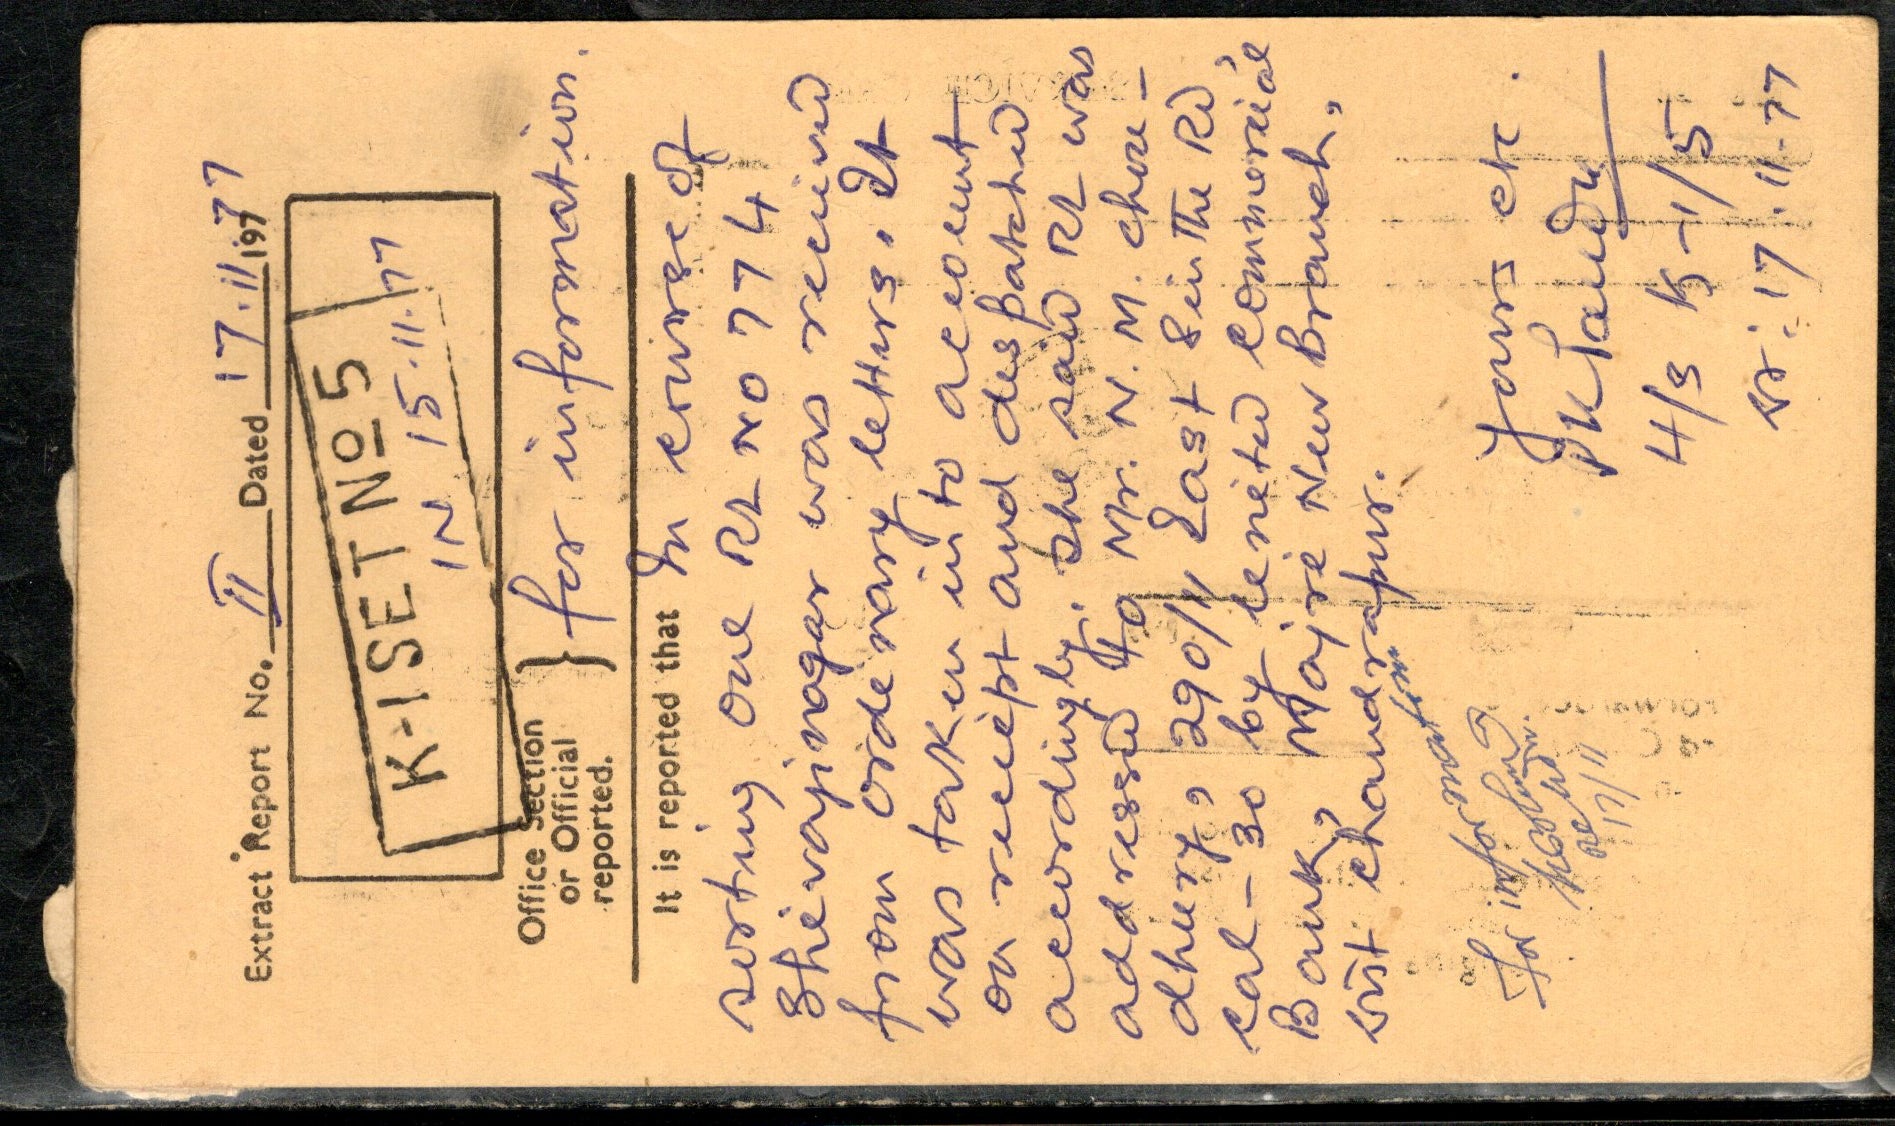 Extract Report No. II Dated 17.11.1977
K-1 SET No 5
IN 15.11.77
Office Section
or Official
reported.
} for information.
It is reported that In course of
sorting one RL No 774
Shivajinagar was received
from ordenary letters. It
was taken in to account
on receipt and despatched
accordingly. The said RL was
addressed to Mr. N. M. chow-
dhury, 290/1 Last Sein The Rd
cal-30 by United commercial
Bank, Majri New Branch,
Dist chandrapur.
Yours etc.
PK Pandu
4/S K-1/5
Dt. 17.11.77
For information
17/11